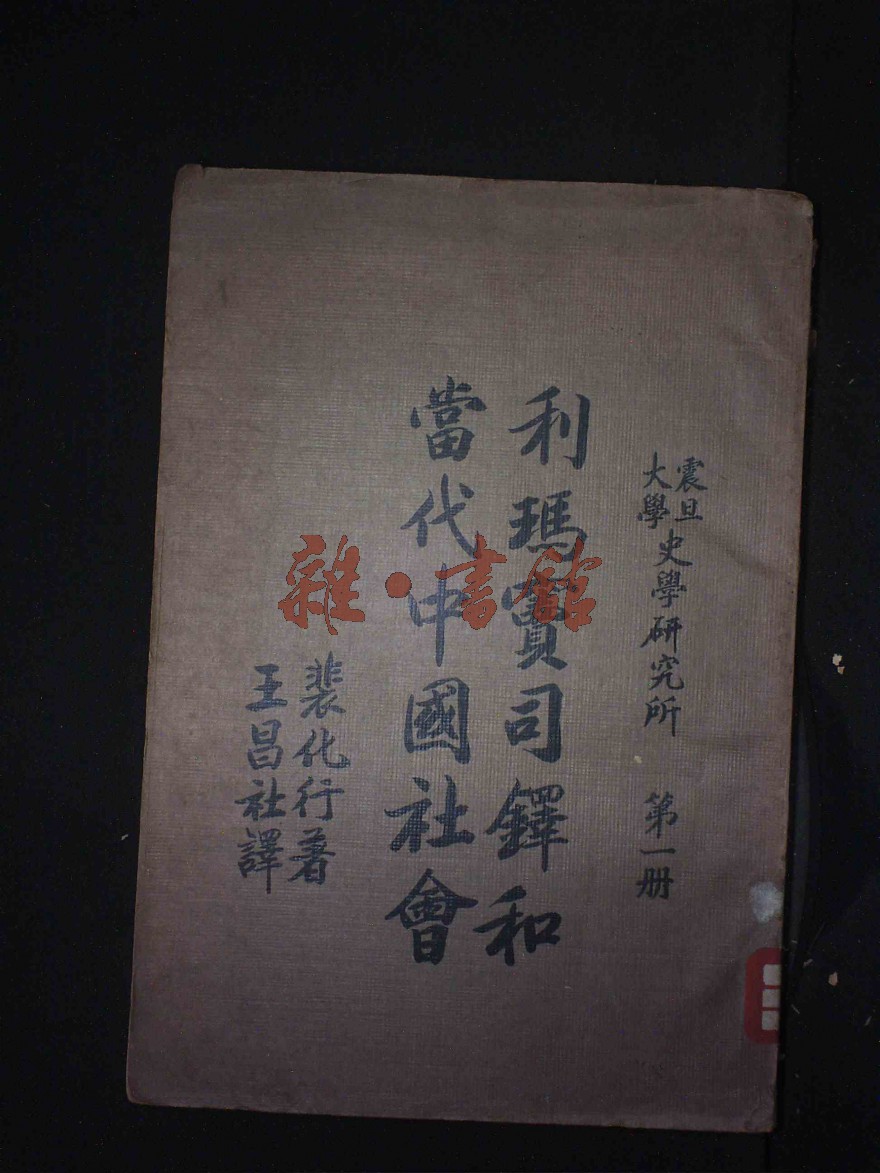 震旦
大學
史學研究所 第一册
利瑪竇司鐸和
當代中國社會
裴化行著
王昌社譯
雜·書館